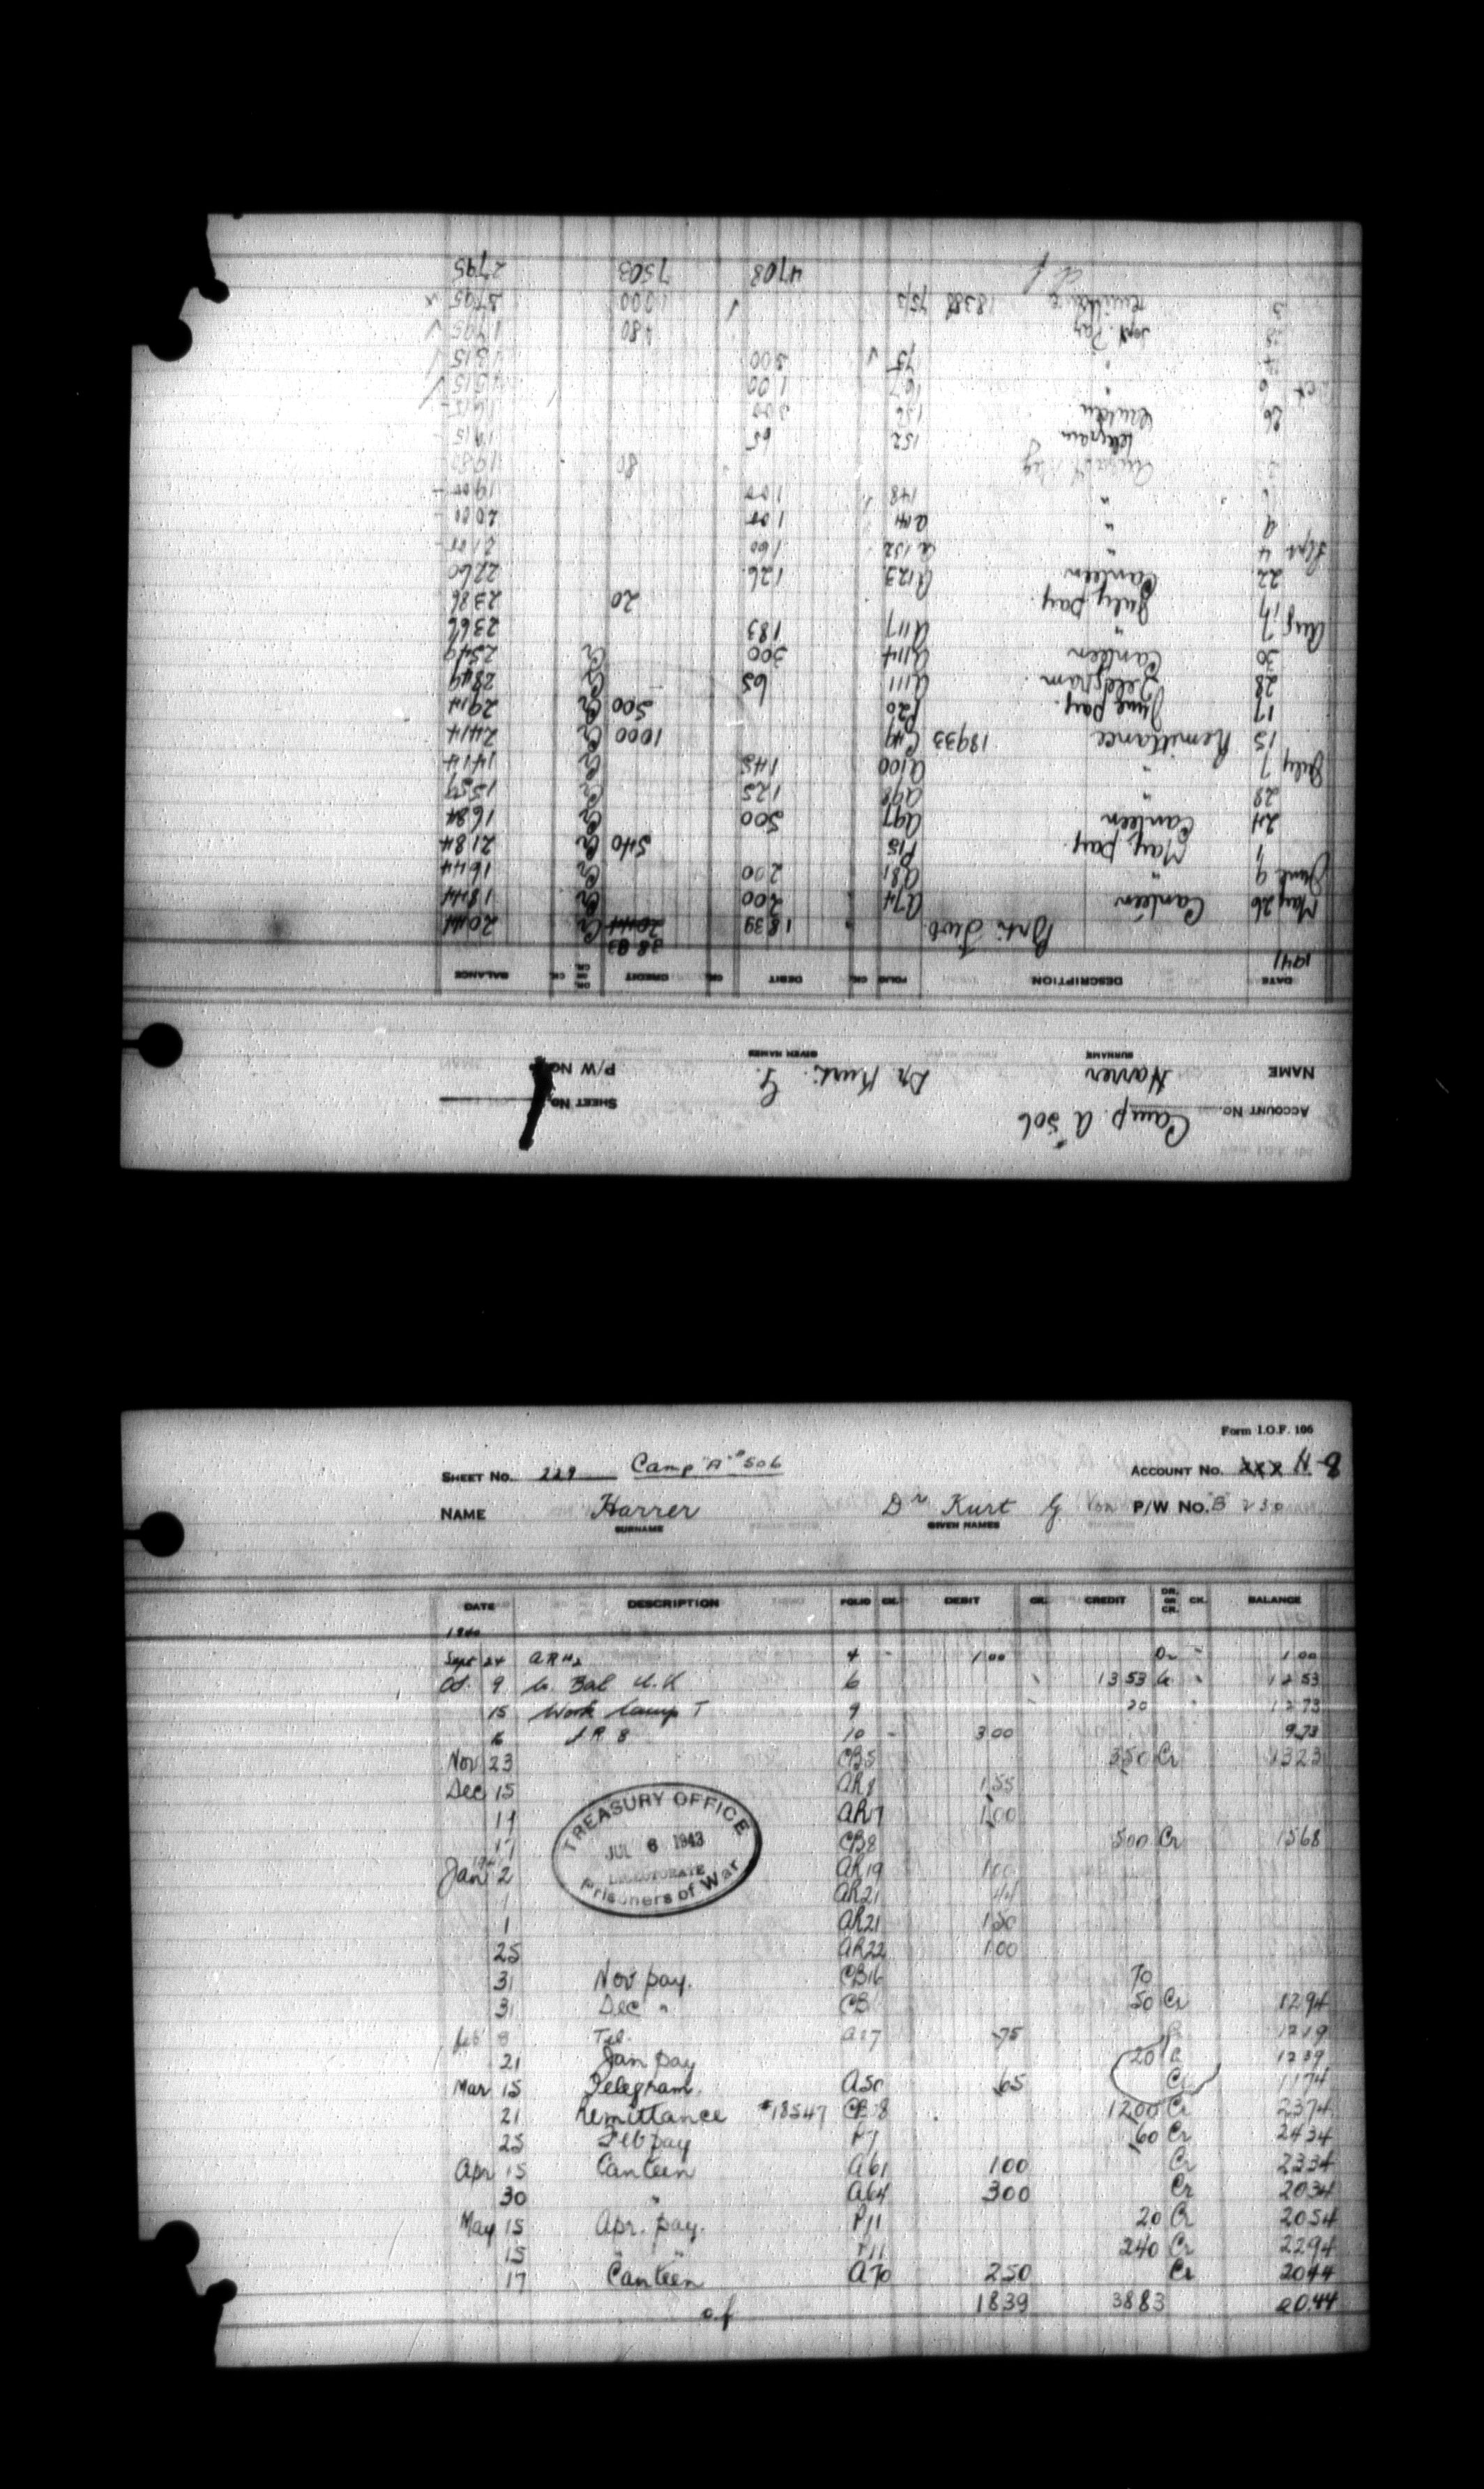 ACCOUNT No. Camp. A 506 SHEET No.
NAME Harrer Dr Kurt. G. P/W No.
SURNAME GIVEN NAMES
DATE DESCRIPTION FOLIO CK. DEBIT CK. CREDIT DR. OR CR. CK. BALANCE
1941 3883
Brt. Fwd. 1839 2044 Cr 2044
May 26 Canteen A74 200 Cr 1844
June 9 " A81 200 Cr 1644
May pay. P15 540 Cr 2184
24 Canteen A97 500 Cr 1684
28 " A98 125 Cr 1559
July 7 " A100 145 Cr 1414
15 Remittance 18933 C49 1000 Cr 2414
17 June pay. P20 500 Cr 2914
28 Telegram. A111 65 Cr 2849
30 Canteen A114 300 Cr 2549
Aug 7 " A117 183 2366
14 July pay. 20 2386
22 Canteen A123 126 2260
Sept 4 " A132 160 2100
9 " A141 100 2000
" 148 100 1900
August Pay 80 1980
Telegram 152 65 1915
26 Canteen 156 300 1615
Oct 6 " 167 100 1515
" 175 300 1315
Sept. Pay 480 1795
Remittance 18388 1000 2795
4708 7503 2795
Form I.O.F. 106
SHEET No. 229 Camp "A" # 506 ACCOUNT No. XXX H-8
NAME Harrer Dr Kurt G P/W No. "B" 230
SURNAME GIVEN NAMES
DATE DESCRIPTION FOLIO CK. DEBIT CK. CREDIT DR. OR CR. CK. BALANCE
1940
Sept 24 AR #2 4 100 Dr 1 00
Oct. 9 Bal U.K 6 13 53 Cr 12 53
15 Work Camp T 9 20 12 73
16 A R 8 10 300 9 73
Nov 23 CB5 350 Cr 1323
Dec 15 AR8 155
11 AR7 100
17 CB8 500 Cr 1568
Jan 2 AR19 100
AR21 44
1 AR21 150
25 AR22 100
31 Nov pay. CB16 70
31 Dec " CB 50 Cr 1294
Feb 8 Tel. 75 1219
21 Jan pay 20 Cr 1239
Mar 15 Telegram. A50 65 Cr 1174
21 Remittance #18547 1200 Cr 2374
25 Feb pay P7 60 Cr 2434
Apr 15 Canteen A61 100 Cr 2334
30 " A64 300 Cr 2034
May 15 Apr. pay. P11 20 Cr 2054
15 " " P11 240 Cr 2294
17 Canteen A70 250 Cr 2044
c.f 1839 3883 20.44
TREASURY OFFICE
JUL 6 1943
DIRECTORATE
Prisoners of War